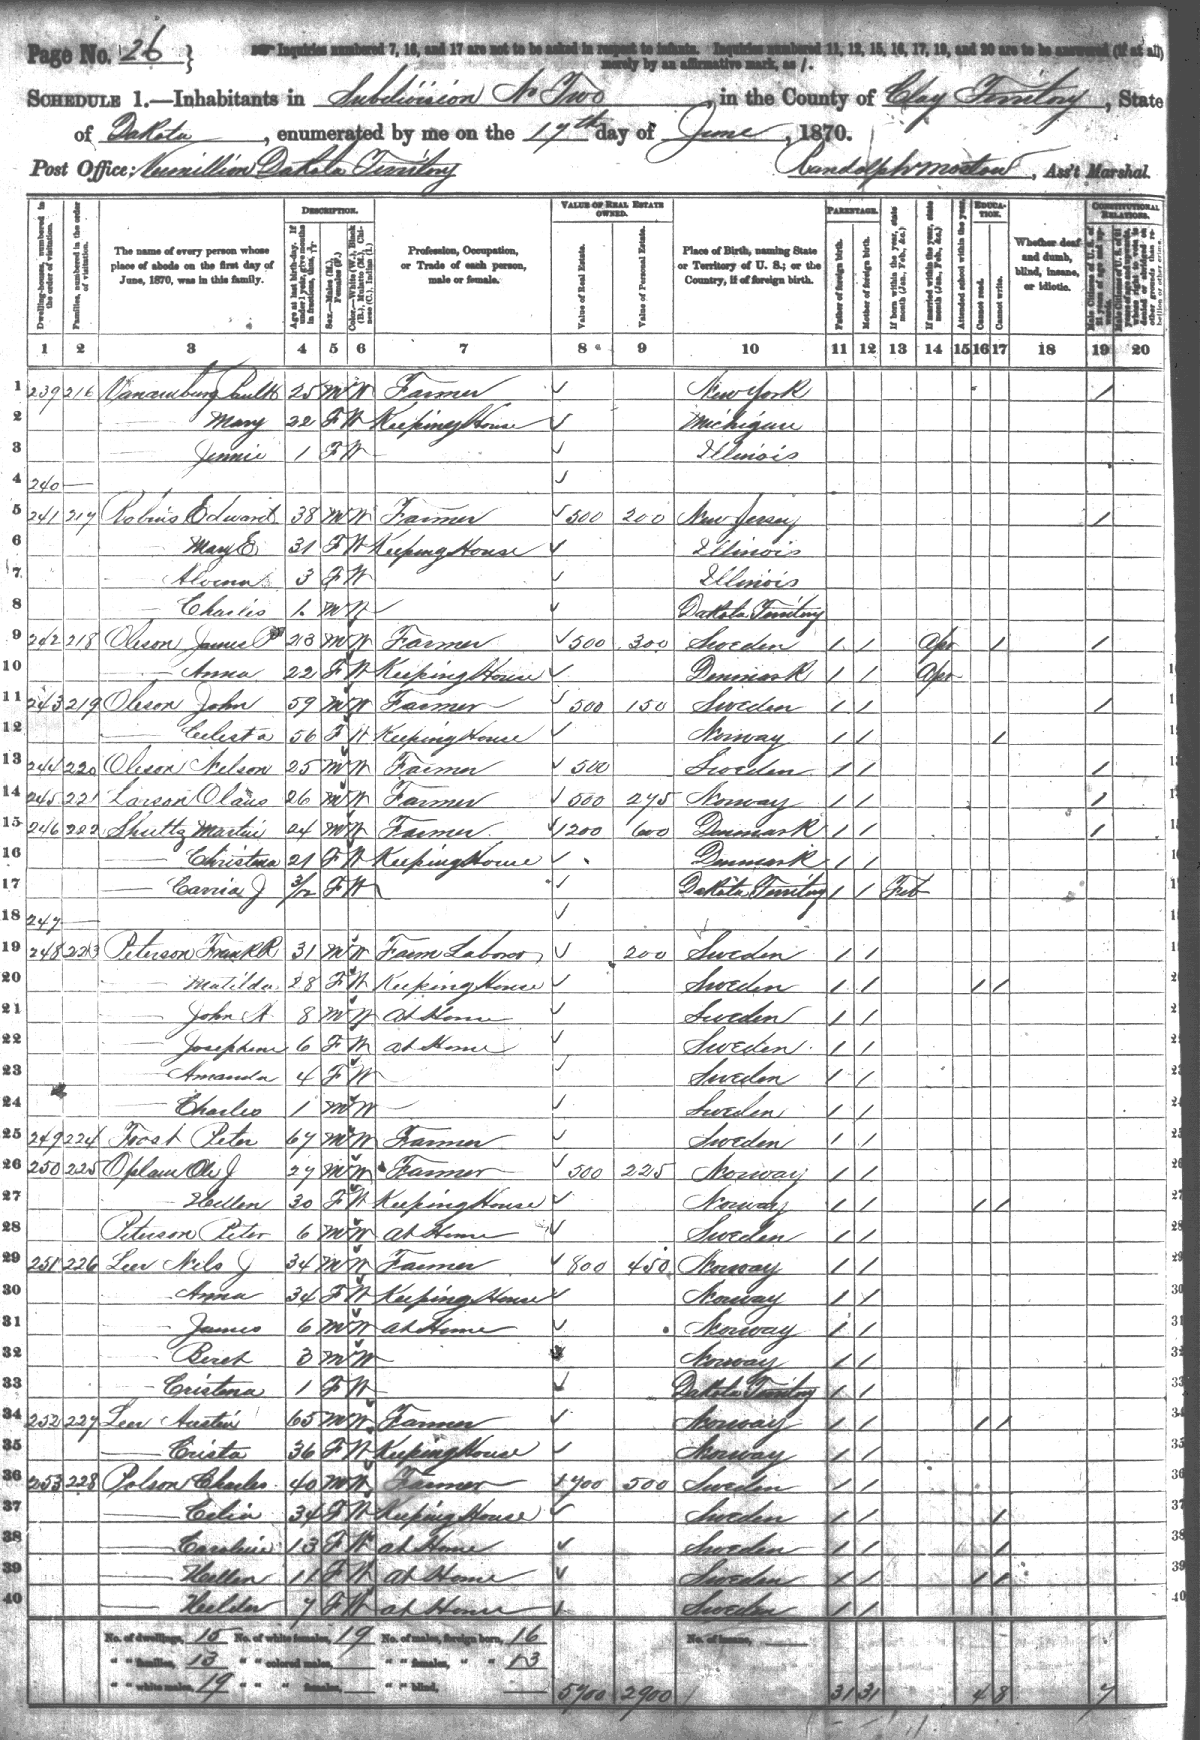 Page No. 26 }
Inquiries numbered 7, 16, and 17 are not to be asked in respect to infants. Inquiries numbered 11, 12, 15, 16, 17, 19, and 20 are to be answered (if at all)
merely by an affirmative mark, as /.
SCHEDULE 1.—Inhabitants in Subdivision No Two, in the County of Clay Territory, State
of Dakota, enumerated by me on the 17th day of June, 1870.
Post Office: Vermillion Dakota Territory Randolph Morton, Ass't Marshal.
Dwelling-houses, numbered in the order of visitation.
Families, numbered in the order of visitation.
The name of every person whose place of abode on the first day of June, 1870, was in this family.
DESCRIPTION.
Age at last birth-day. If under 1 year, give months in fractions, thus,
Sex.—Males (M.), Females (F.)
Color.—White (W.), Black (B.), Mulatto (M.), Chinese (C.), Indian (I.)
Profession, Occupation, or Trade of each person, male or female.
VALUE OF REAL ESTATE OWNED.
Value of Real Estate.
Value of Personal Estate.
Place of Birth, naming State or Territory of U. S.; or the Country, if of foreign birth.
PARENTAGE.
Father of foreign birth.
Mother of foreign birth.
If born within the year, state month (Jan., Feb., &c.)
If married within the year, state month (Jan., Feb., &c.)
Attended school within the year.
EDUCATION.
Cannot read.
Cannot write.
Whether deaf and dumb, blind, insane, or idiotic.
CONSTITUTIONAL RELATIONS.
1 2 3 4 5 6 7 8 9 10 11 12 13 14 15 16 17 18 19 20
1 239 216 Paul 25 M W Farmer New York /
2 Mary 22 F W Keeping House Michigan
3 Jennie 1 F W Illinois
4 240
5 241 217 Robins Edward 38 M W Farmer 500 200 New Jersey /
6 Mary E 31 F W Keeping House Illinois
7 Alvena 3 F W Illinois
8 Charles M W Dakota Territory
9 242 218 Oleson James P 23 M W Farmer 500 300 Sweden / / Apr / /
10 Anna 22 F W Keeping House Denmark / / Apr
11 243 219 Oleson John 59 M W Farmer 500 150 Sweden / / /
12 Celesta 56 F W Keeping House Norway / / /
13 244 220 Oleson Nelson 25 M W Farmer 500 Sweden / / /
14 245 221 Larson Olaus 26 M W Farmer 500 275 Norway / / /
15 246 222 Shultz Martin 24 M W Farmer 1200 600 Denmark / / /
16 Christena 21 F W Keeping House Denmark / /
17 Carria J 3/12 F W Dakota Territory / / Feb
18 247
19 248 223 Peterson Frank R 31 M W Farm Laborer 200 Sweden / /
20 Matilda 28 F W Keeping House Sweden / / / /
21 John A 8 M W at Home Sweden / /
22 Josephine 6 F W at Home Sweden / /
23 Amanda 4 F W Sweden / /
24 Charles 1 M W Sweden / /
25 249 224 Frost Peter 67 M W Farmer Sweden / /
26 250 225 Oplaus Ole J 27 M W Farmer 500 225 Norway / /
27 Hellen 30 F W Keeping House Norway / / / /
28 Peterson Peter 6 M W at Home Sweden / /
29 251 226 Leer Nels J 34 M W Farmer 800 450 Norway / /
30 Anna 34 F W Keeping House Norway / /
31 James 6 M W at Home Norway / /
32 Beret 3 M W Norway / /
33 Cristena 1 F W Dakota Territory / /
34 252 227 Leer Austin 65 M W Farmer Norway / / / /
35 Crista 36 F W Keeping House Norway / /
36 253 228 Polson Charles 40 M W Farmer 700 500 Sweden / /
37 Celia 34 F W Keeping House Sweden / / /
38 Caroline 13 F W at Home Sweden / / /
39 Hellen 11 F W at Home Sweden / / / /
40 Helder 7 F W at Home Sweden / /
No. of dwellings, 15 No. of white females, 19 No. of males, foreign born, 16 No. of insane,
" " families, 13 " " colored males, " " females, " " 13
" " white males, 19 " " " females, " " blind, 5700 2900 31 31 4 8 7